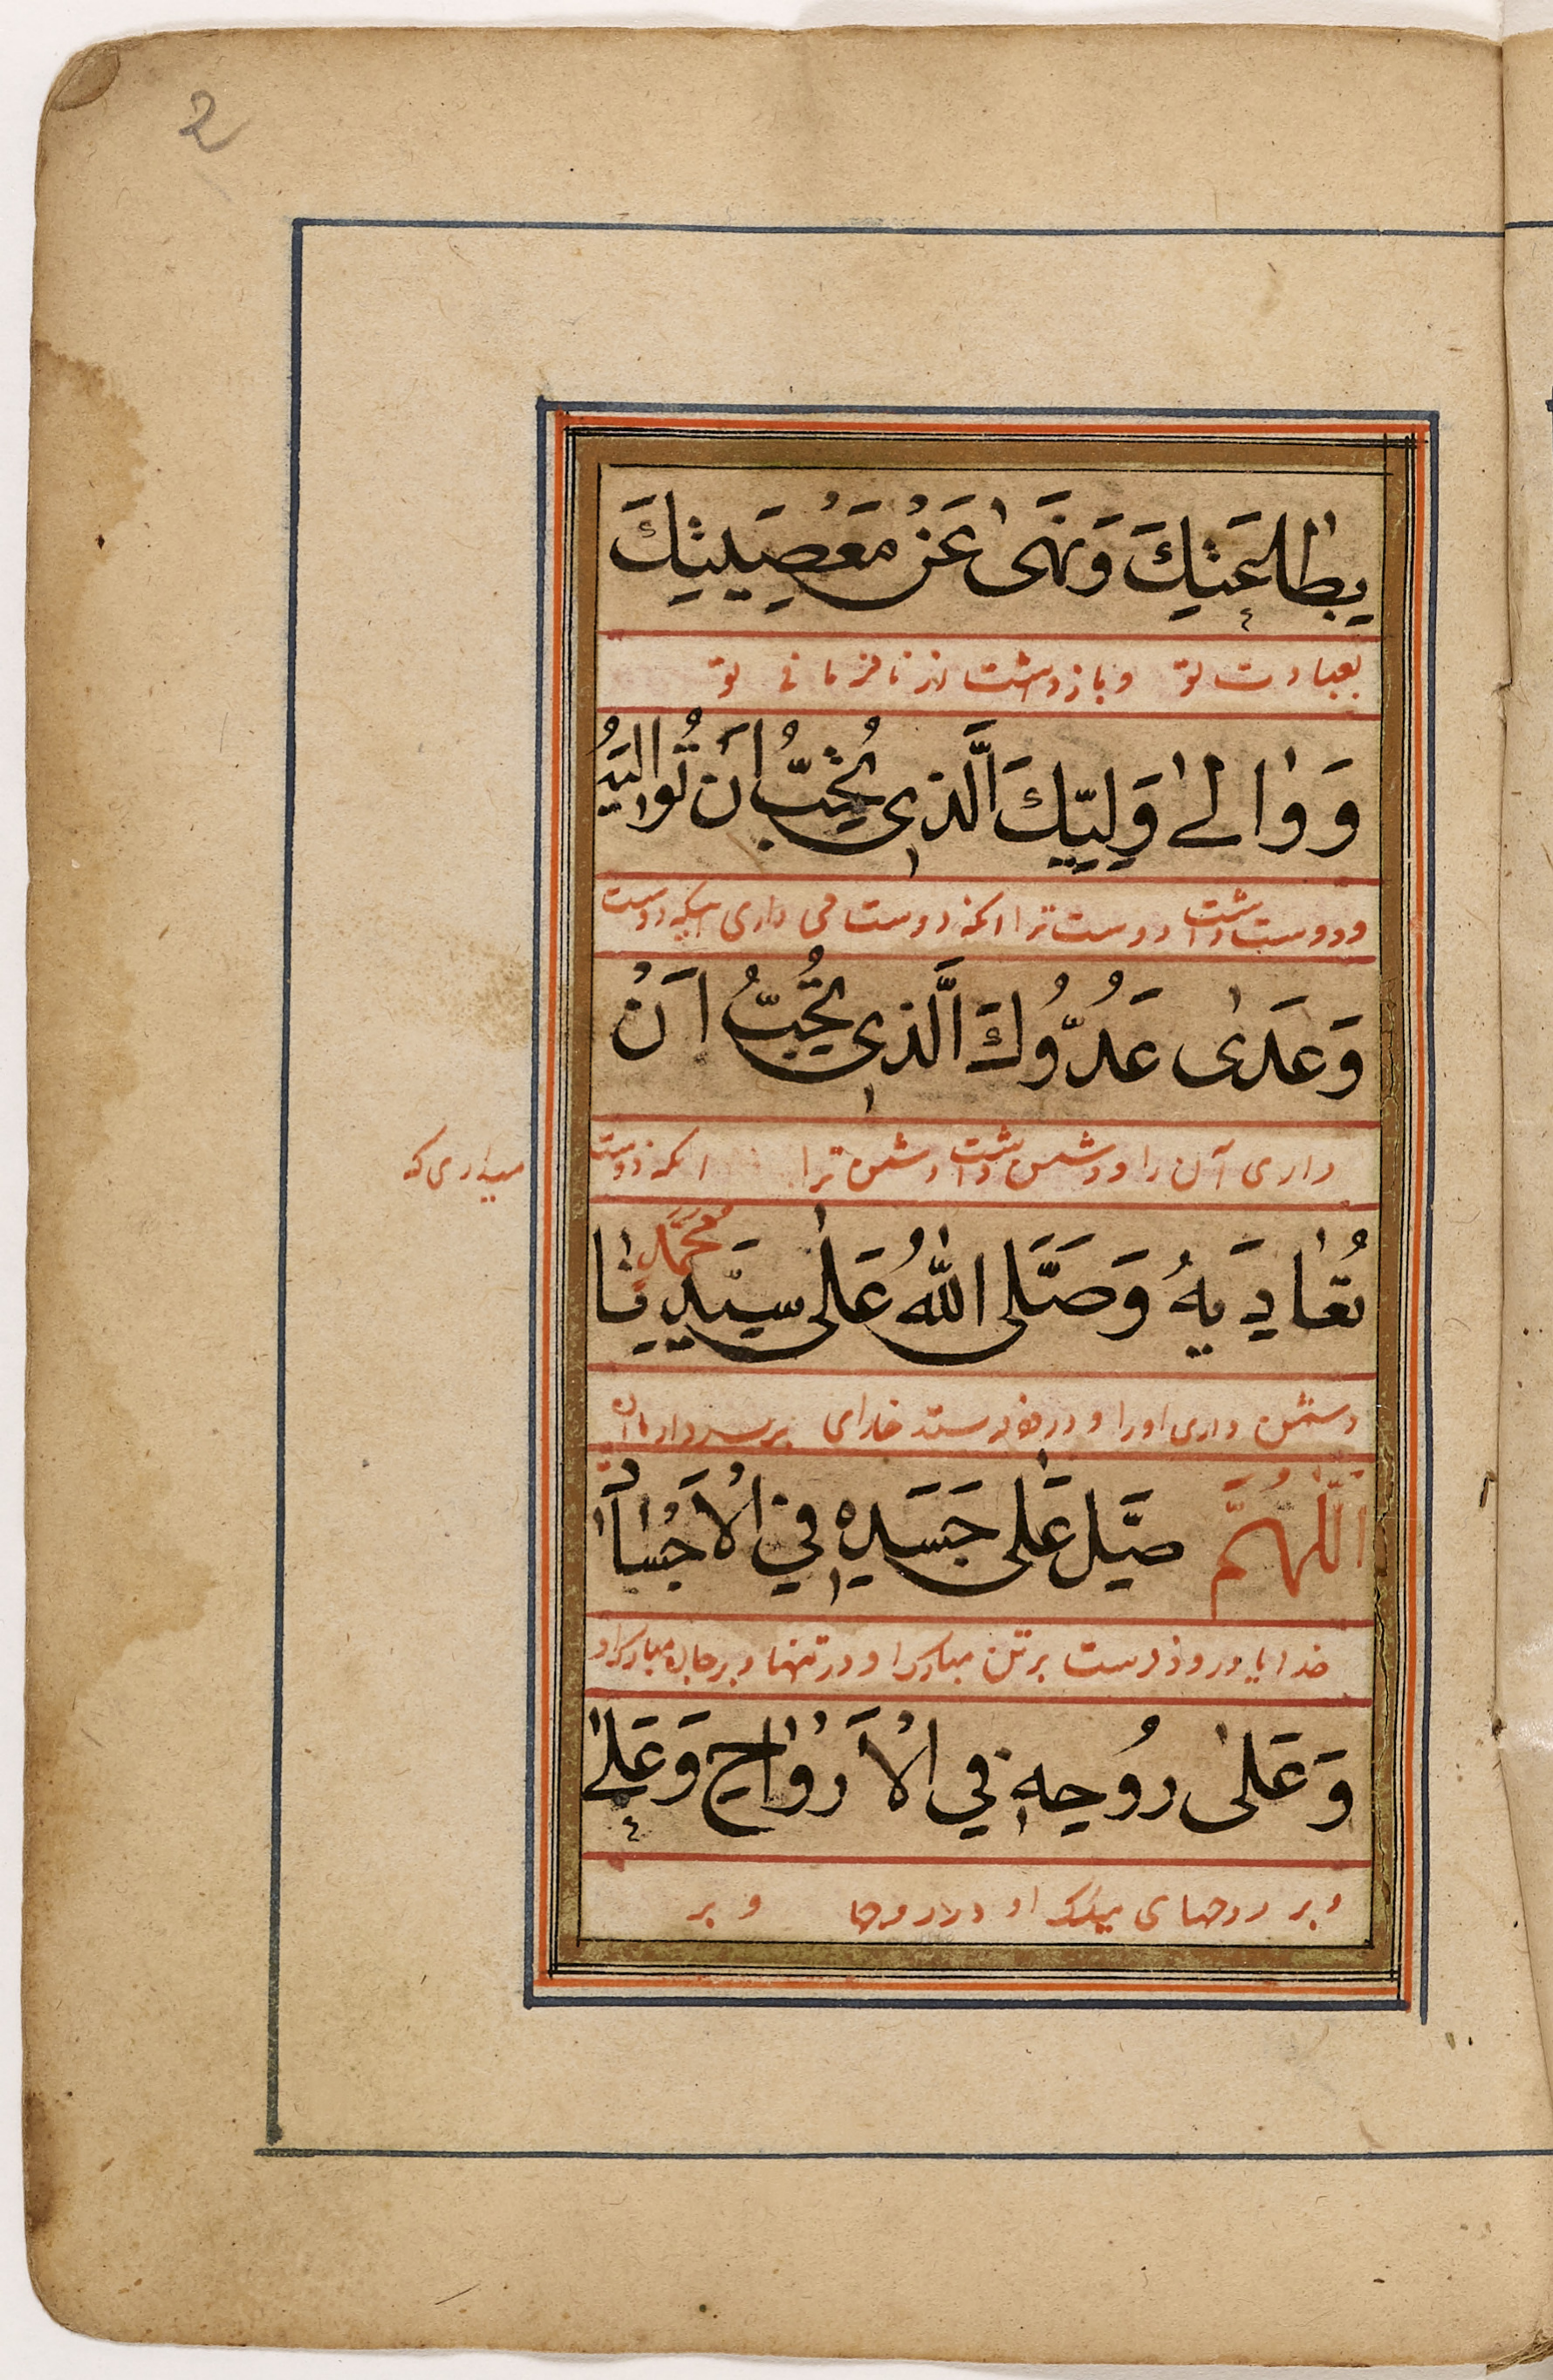 2
بِطَاعَتِكَ وَنَهَىٰ عَنْ مَعْصِيَتِكَ
بعبادت تو و باز داشت از نافرمانی تو
وَوَالىٰ وَلِيَّكَ الَّذِی تُحِبُّ أَنْ تُوَالِيَهُ
و دوست داشت دوست ترا انکه دوست می داری اینکه دوست
وَعَادىٰ عَدُوَّكَ الَّذِی تُحِبُّ اَنْ
داری آن را و دشمن داشت دشمن ترا انکه دوست
میداری که
تُعَادِيَهُ وَصَلَّى اللّٰهُ عَلىٰ سَيِّدِنَا مُحَمَّدٍ
دشمن داری او را و درود فرستد خدای بر سردار ما
اَللّٰهُمَّ صَلِّ عَلىٰ جَسَدِهِ فِي الْاَجْسَادِ
خدایا درود فرست بر تن مبارک او در تنها و بر جان مبارک او
وَعَلىٰ رُوحِهِ فِي الْاَرْوَاحِ وَعَلىٰ
و بر روحهای مبارک او در روحها و بر